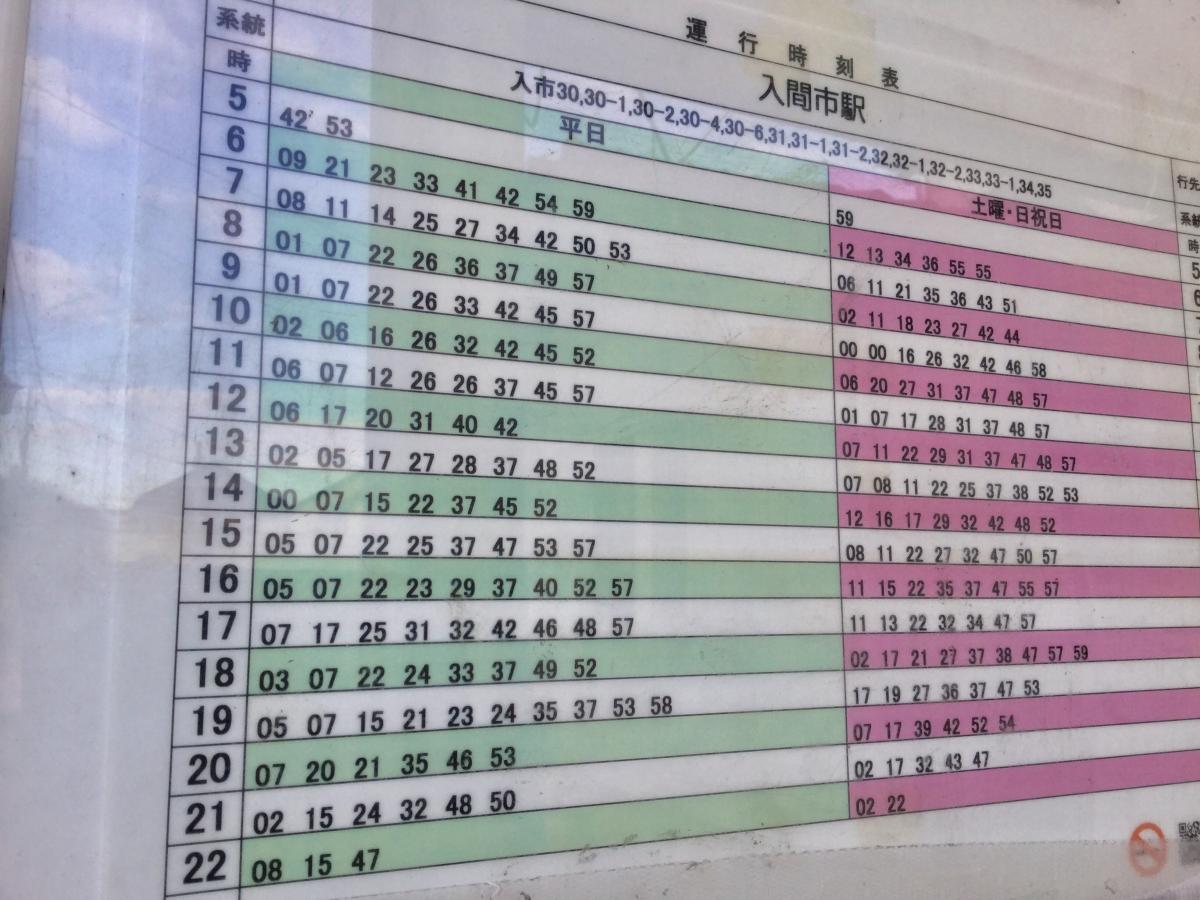 運行時刻表
系統 入間市駅 行先
入市30,30-1,30-2,30-4,30-6,31,31-1,31-2,32,32-1,32-2,33,33-1,34,35
時 平日 土曜・日祝日
5 42' 53 59
6 09 21 23 33 41 42 54 59 12 13 34 36 55 55
7 08 11 14 25 27 34 42 50 53 06 11 21 35 36 43 51
8 01 07 22 26 36 37 49 57 02 11 18 23 27 42 44
9 01 07 22 26 33 42 45 57 00 00 16 26 32 42 46 58
10 02 06 16 26 32 42 45 52 06 20 27 31 37 47 48 57
11 06 07 12 26 26 37 45 57 01 07 17 28 31 37 48 57
12 06 17 20 31 40 42 07 11 22 29 31 37 47 48 57
13 02 05 17 27 28 37 48 52 07 08 11 22 25 37 38 52 53
14 00 07 15 22 37 45 52 12 16 17 29 32 42 48 52
15 05 07 22 25 37 47 53 57 08 11 22 27 32 47 50 57
16 05 07 22 23 29 37 40 52 57 11 15 22 35 37 47 55 57
17 07 17 25 31 32 42 46 48 57 11 13 22 32 34 47 57
18 03 07 22 24 33 37 49 52 02 17 21 27 37 38 47 57 59
19 05 07 15 21 23 24 35 37 53 58 17 19 27 36 37 47 53
20 07 20 21 35 46 53 07 17 39 42 52 54
21 02 15 24 32 48 50 02 17 32 43 47
22 08 15 47 02 22